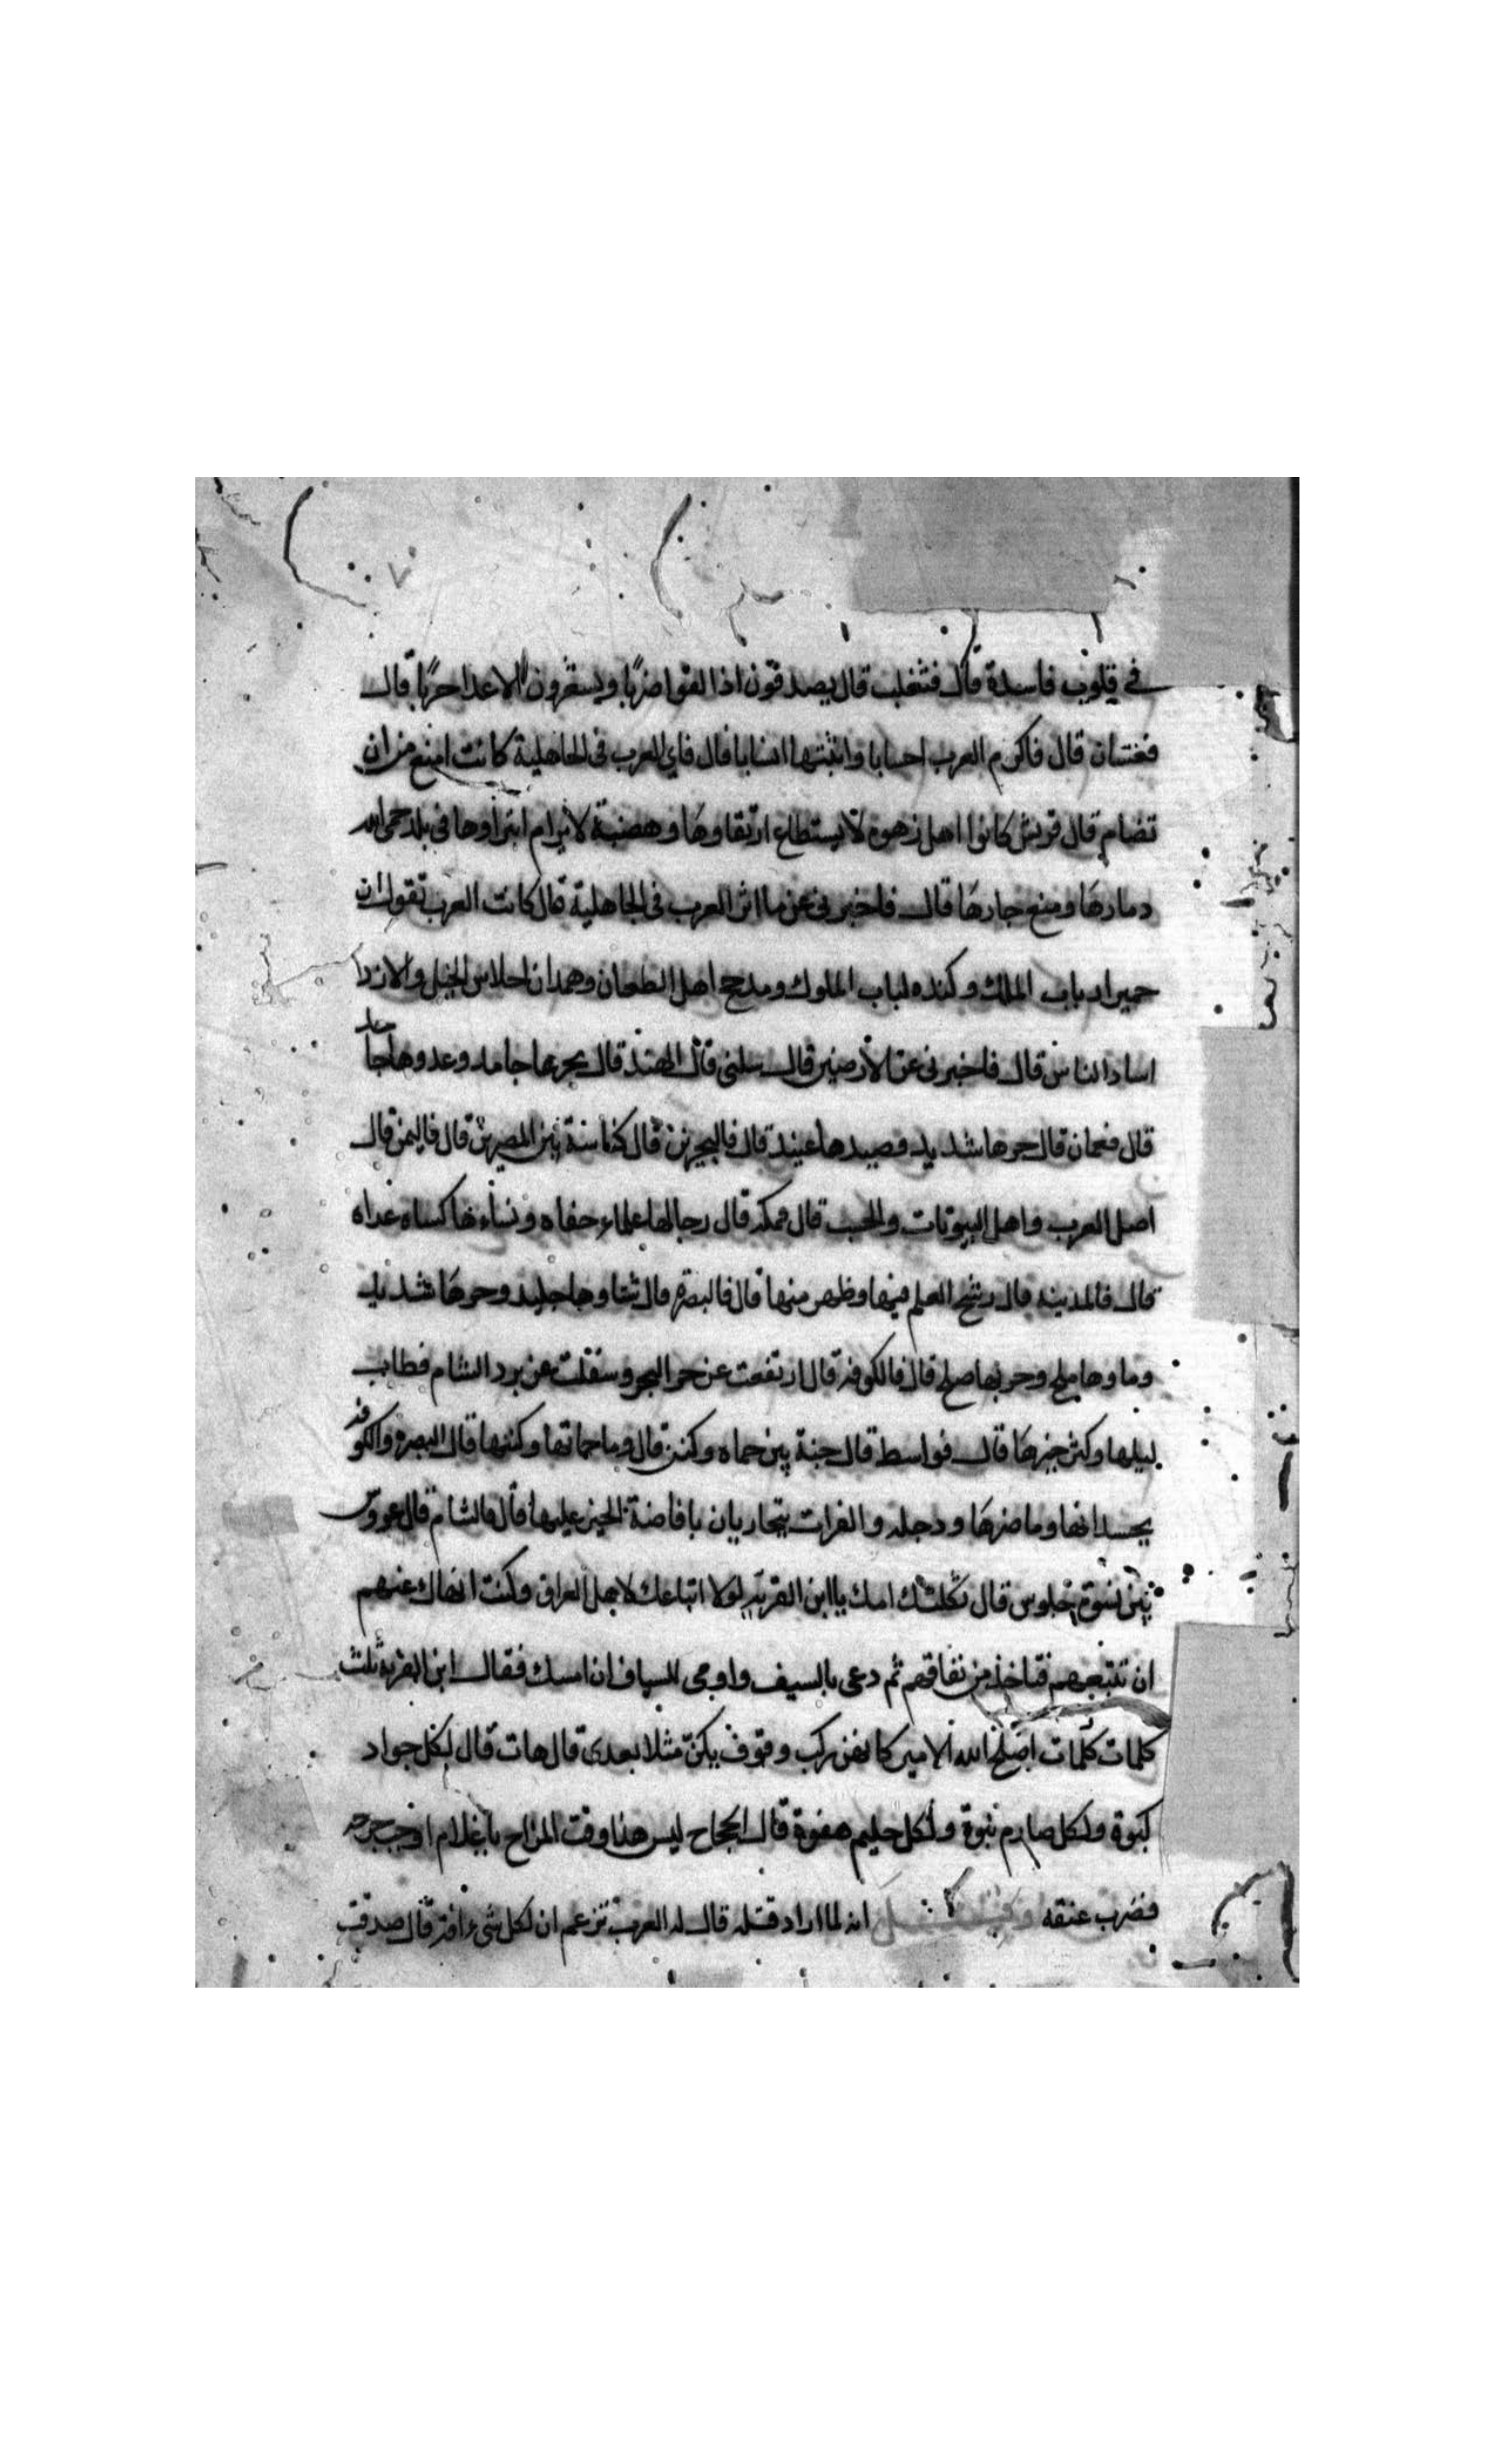 في قلوب فاسدة قال فتغلب قال يصدقون اذا لقوا ضربا ويسعرون للاعدا حربا قال
فغسان قال فاكرم العرب احسابا واثبتها انسابا قال فاي العرب في الجاهلية كانت امنع من ان
تضام قال قريش كانوا اهل زهوة لا يستطاع ارتقاوها وهضبة لا يرام انتزاوها في بلد حمى الله
دمارها ومنع جارها قال فاخبرني عن ماثر العرب في الجاهلية قال كانت العرب تقول ان
حمير ارباب الملك وكنده لباب الملوك ومدحج اهل الطعان وهمدان احلاس الخيل والازد
اساد الناس قال فاخبرني عن الارضين قال سلني قال الهند قال بحرها جامد وعدوها جا
قال فعمان قال حرها شديد وصيدها عتيد قال فالبحرين قال كناسة بين المصرين قال فاليمن قال
اصل العرب واهل البيوتات والحسب قال فمكه قال رجالها علماء حفاه ونساءها كساه عراه
قال فالمدينه قال رسخ العلم فيها وظهر منها قال فالبصره قال شتاوها جليد وحرها شديد
وماوها ملح وحربها صلح قال فالكوفه قال ارتفعت عن حر البحر وسفلت عن برد الشام فطاب
ليلها وكثر خيرها قال فواسط قال جنة بين حماه وكنه قال وما حماتها وكنتها قال البصره والكوفه
يحسدانها وما ضرها ودجله والفرات يتجاريان بافاضة الخير عليها قال فالشام قال عروس
بين نسوة جلوس قال ثكلتك امك يا ابن القريه لولا اتباعك لاهل العراق وكنت انهاك عنهم
ان تتبعهم فتاخذ من نفاقهم ثم دعى بالسيف واومى للسياف ان امسك فقال ابن القريه ثلث
كلمات كلمات اصلح الله الامير كانهن ركب وقوف يكن مثلا بعدى قال هات قال لكل جواد
كبوة ولكل صارم نبوة ولكل حليم هفوة قال الحجاج ليس هذا وقت المزاح يا غلام اوجب جرحه
فضرب عنقه وقيل انه لما اراد قتله قال له العرب تزعم ان لكل شيء افة قال صدقت